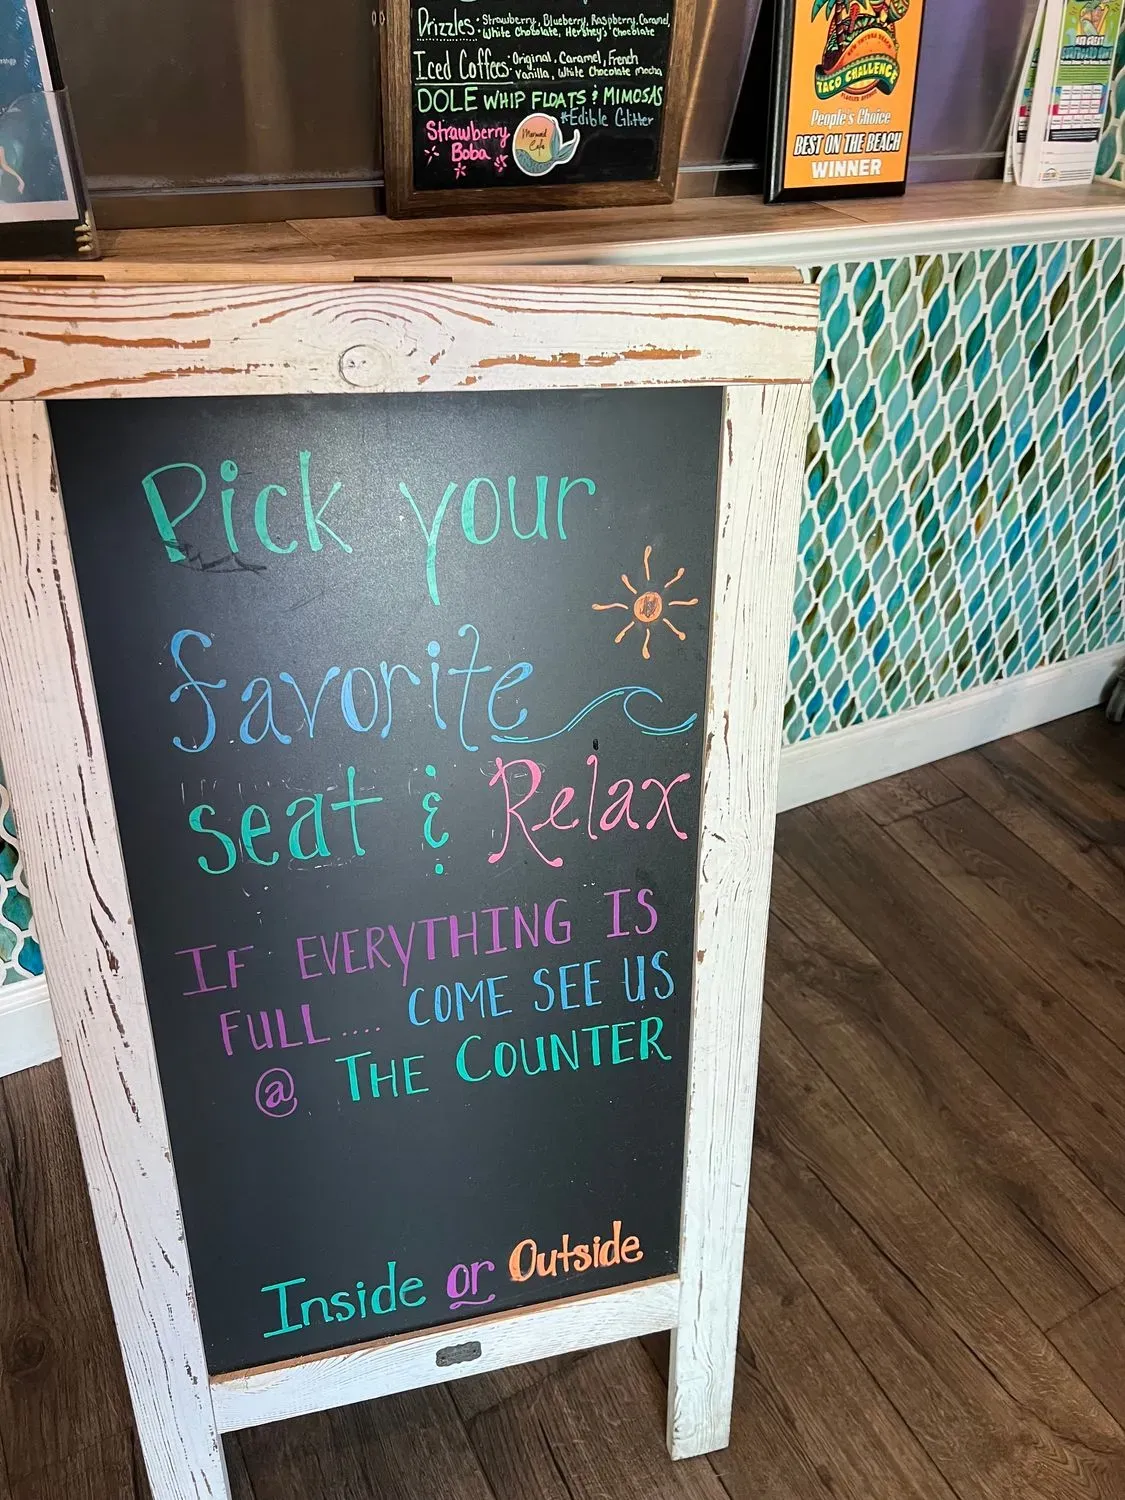 Drizzles: Strawberry, Blueberry, Raspberry, Caramel,
White Chocolate, Hershey's Chocolate
Iced Coffees: Original, Caramel, French
Vanilla, White Chocolate Mocha
DOLE WHIP FLOATS & MIMOSAS
*Edible Glitter
Strawberry
Boba
Mermaid
Cafe
NEW SMYRNA BEACH
TACO CHALLENGE
FLAGLER AVENUE
People's Choice
BEST ON THE BEACH
WINNER
Pick your
favorite
seat & Relax
IF EVERYTHING IS
FULL.... COME SEE US
@ THE COUNTER
Inside or Outside